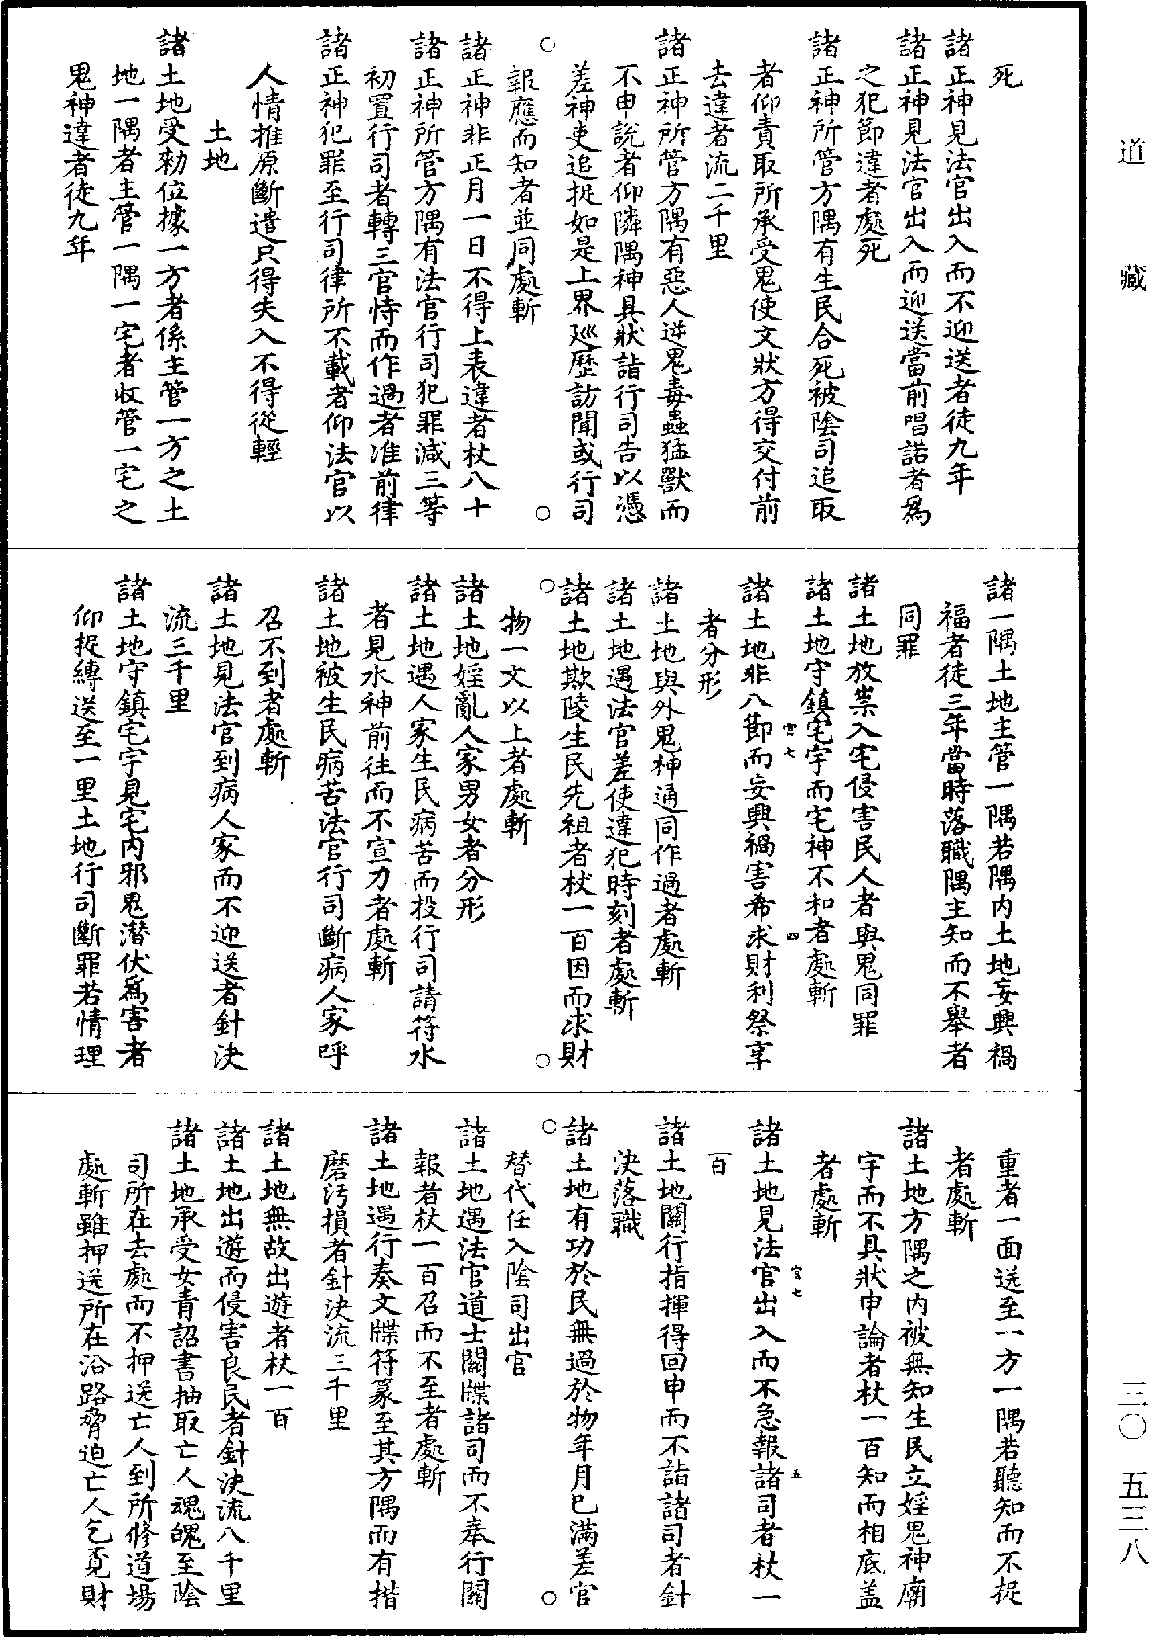 道藏
三〇 五三八
死
諸正神見法官出入而不迎送者徒九年
諸正神見法官出入而迎送當前唱諾者爲
之犯節違者處死
諸正神所管方隅有生民合死被陰司追取
者仰責取所承受鬼使文狀方得交付前
去違者流二千里
諸正神所管方隅有惡人逆鬼毒蟲猛獸而
不申說者仰隣隅神具狀詣行司告以憑
差神吏追捉如是上界廵歷訪聞或行司
報應而知者並同處斬
諸正神非正月一日不得上表違者杖八十
諸正神所管方隅有法官行司犯罪減三等
初置行司者轉三官恃而作過者准前律
諸正神犯罪至行司律所不載者仰法官以
人情推原斷遣只得失入不得從輕
土地
諸土地受勑位據一方者係主管一方之土
地一隅者主管一隅一宅者收管一宅之
鬼神違者徒九年
諸一隅土地主管一隅若隅内土地妄興禍
福者徒三年當時落職隅主知而不舉者
同罪
諸土地放祟入宅侵害民人者與鬼同罪
諸土地守鎮宅宇而宅神不和者處斬
宫七
四
諸土地非八節而妄興禍害希求財利祭享
者分形
諸土地與外鬼神通同作過者處斬
諸土地遇法官差使違犯時刻者處斬
諸土地欺陵生民先祖者杖一百因而求財
物一文以上者處斬
諸土地婬亂人家男女者分形
諸土地遇人家生民病苦而投行司請符水
者見水神前往而不宣力者處斬
諸土地被生民病苦法官行司斷病人家呼
召不到者處斬
諸土地見法官到病人家而不迎送者針決
流三千里
諸土地守鎮宅宇見宅内邪鬼潛伏爲害者
仰捉縛送至一里土地行司斷罪若情理
重者一面送至一方一隅若聽知而不捉
者處斬
諸土地方隅之内被無知生民立婬鬼神廟
宇而不具狀申論者杖一百知而相底盖
者處斬
諸土地見法官出入而不急報諸司者杖一
百
宫七
五
諸土地關行指揮得回申而不詣諸司者針
決落職
諸土地有功於民無過於物年月已滿差官
替代任入陰司出官
諸土地遇法官道士關牒諸司而不奉行關
報者杖一百召而不至者處斬
諸土地遇行奏文牒符篆至其方隅而有揩
磨汚損者針決流三千里
諸土地無故出遊者杖一百
諸土地出遊而侵害良民者針決流八千里
諸土地承受女青詔書抽取亡人魂魄至陰
司所在去處而不押送亡人到所修道場
處斬雖押送所在沿路脅迫亡人乞覔財